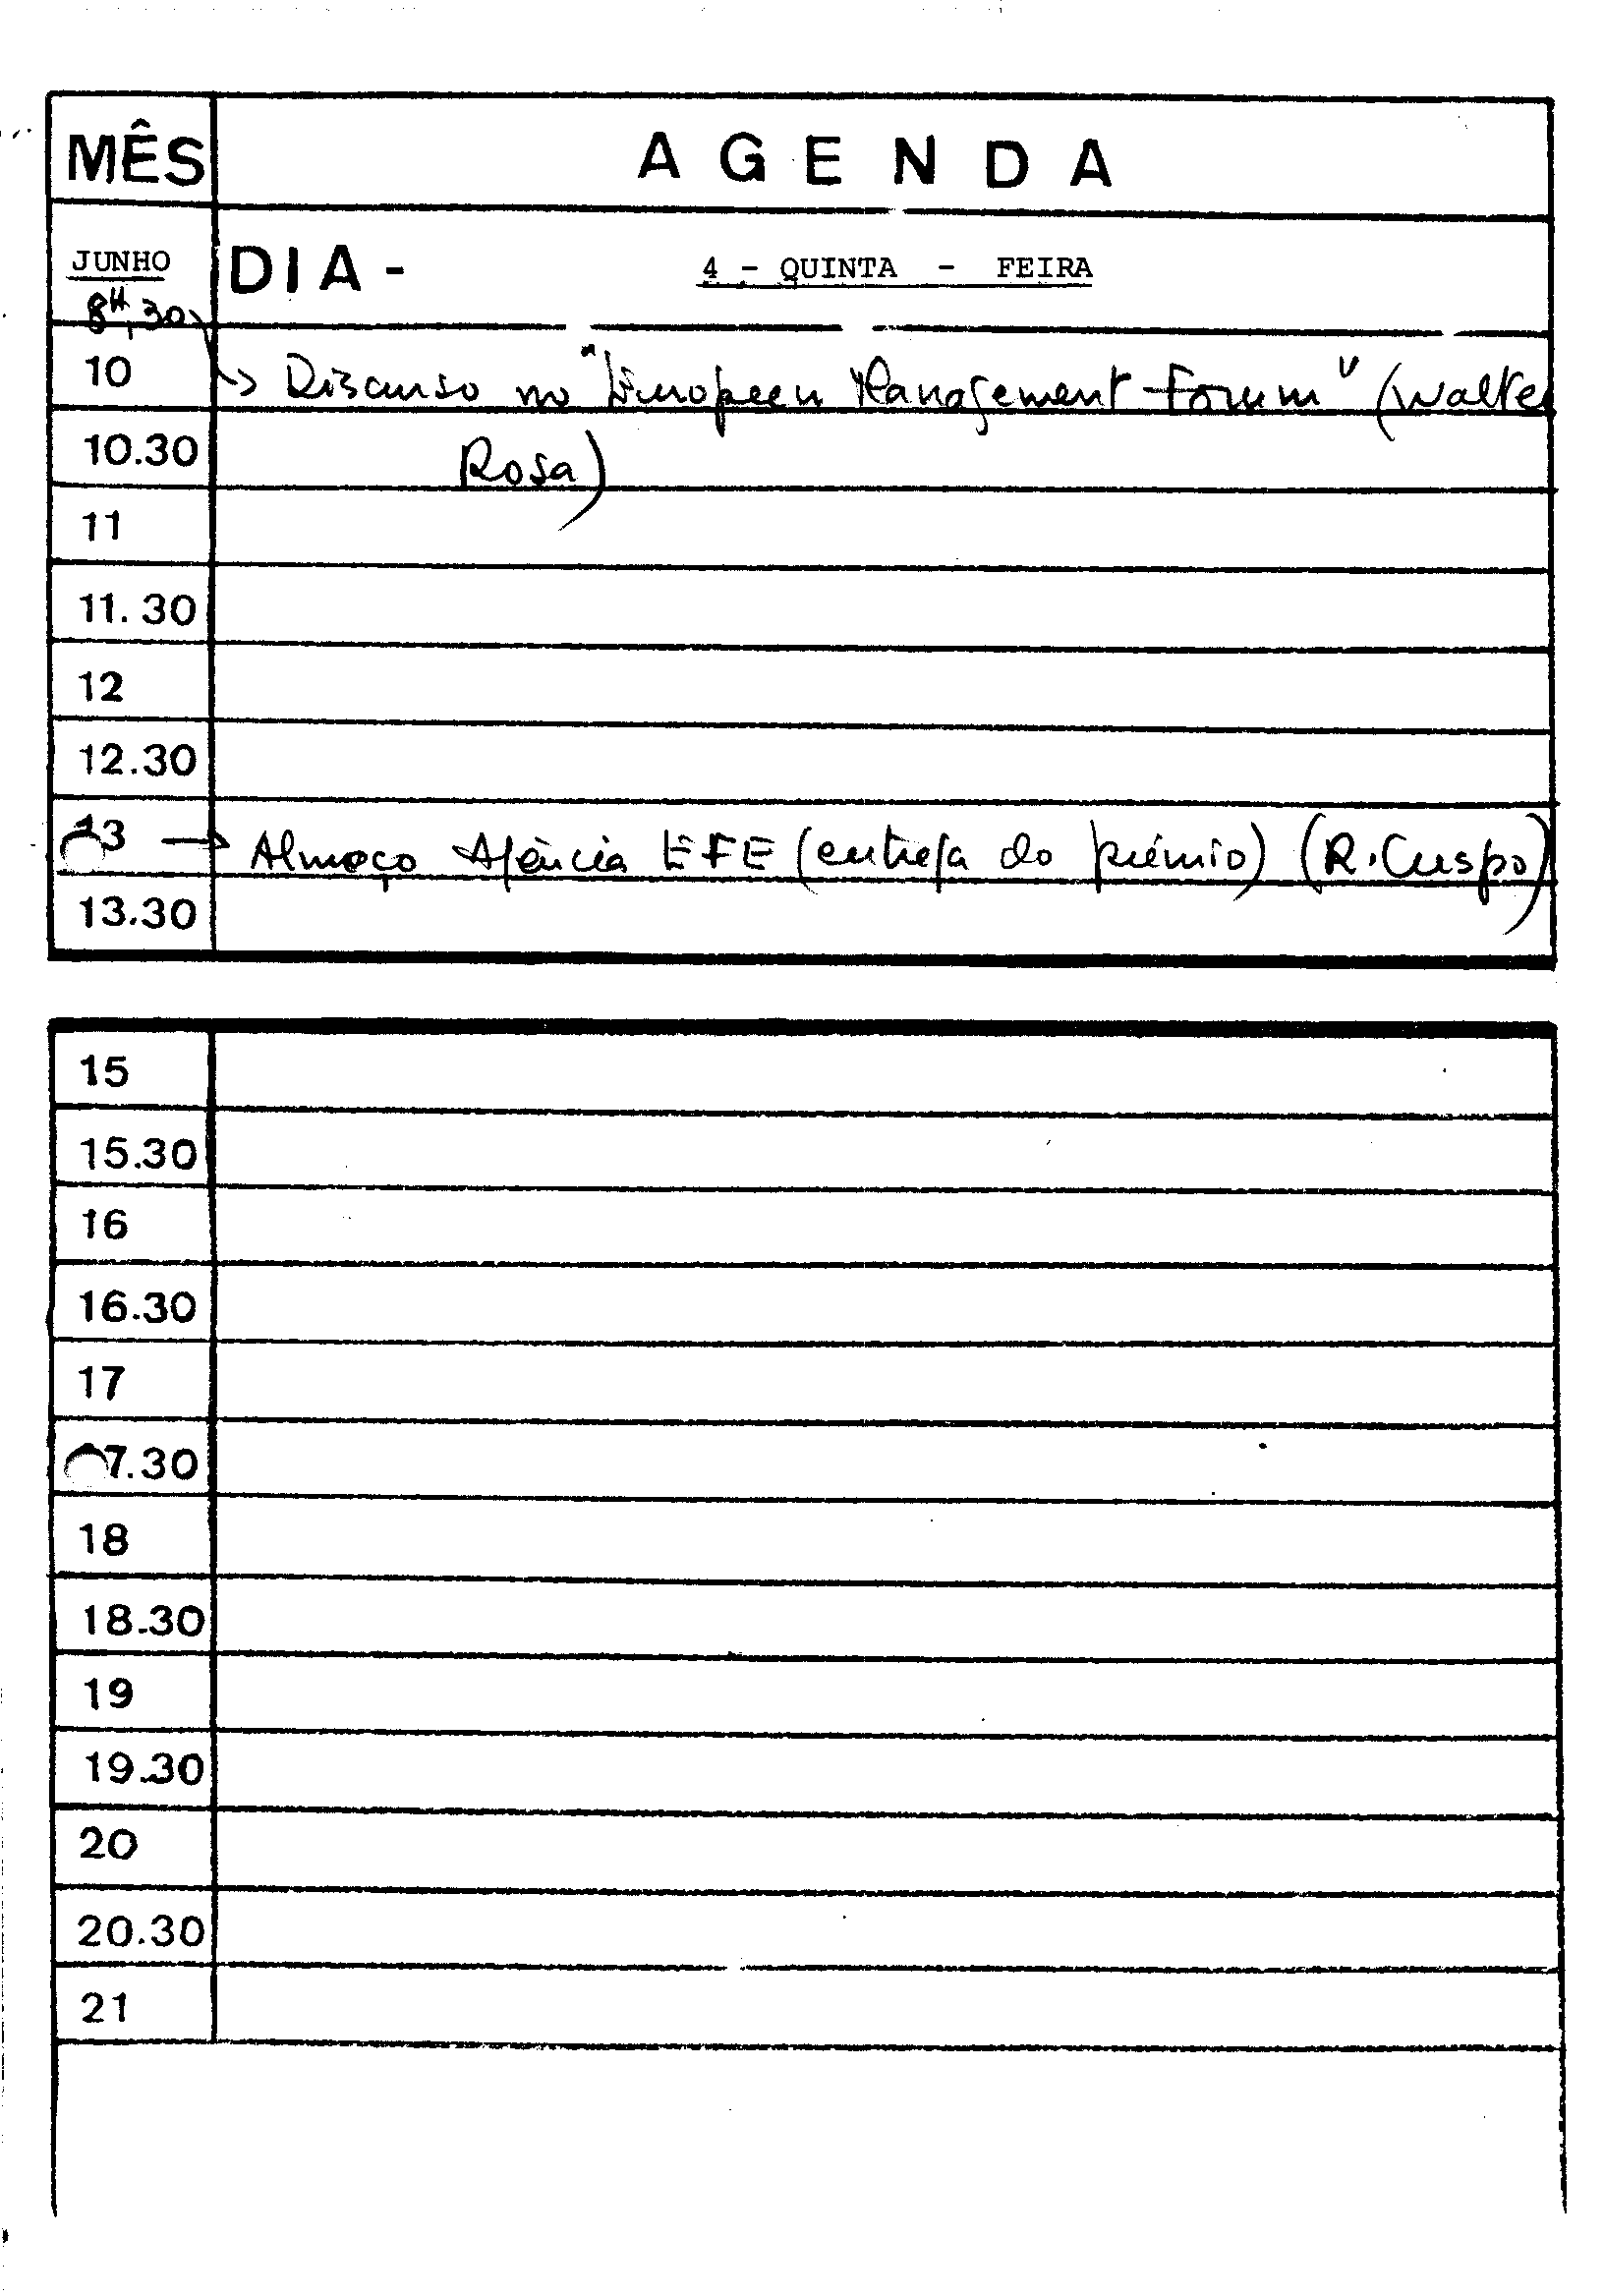 MÊS AGENDA
JUNHO DIA - 4 - QUINTA - FEIRA
8H,30
10 Discurso no "European Management Forum" (Walter
10.30 Rosa)
11
11.30
12
12.30
13 → Almoço Agência EFE (entrega do prémio) (R. Cuspo)
13.30
15
15.30
16
16.30
17
7.30
18
18.30
19
19.30
20
20.30
21